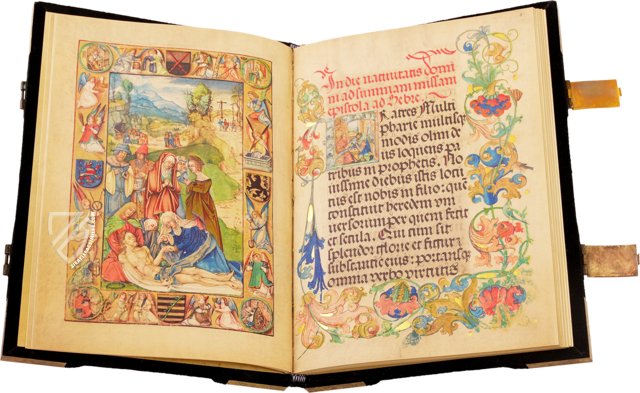 In die nativitatis domi
ni ad summam missam
epistola ad Hebre.
Fratres Multi
pharie multisq
modis olim de
us loquens pa
tribus in prophetis. No
vissime diebus istis locu
tus est nobis in filio: que
constituit heredem vni
versorum per quem fecit
et secula. Qui cum sit
splendor glorie et figura
substantie eius: portansq
omnia verbo virtutis